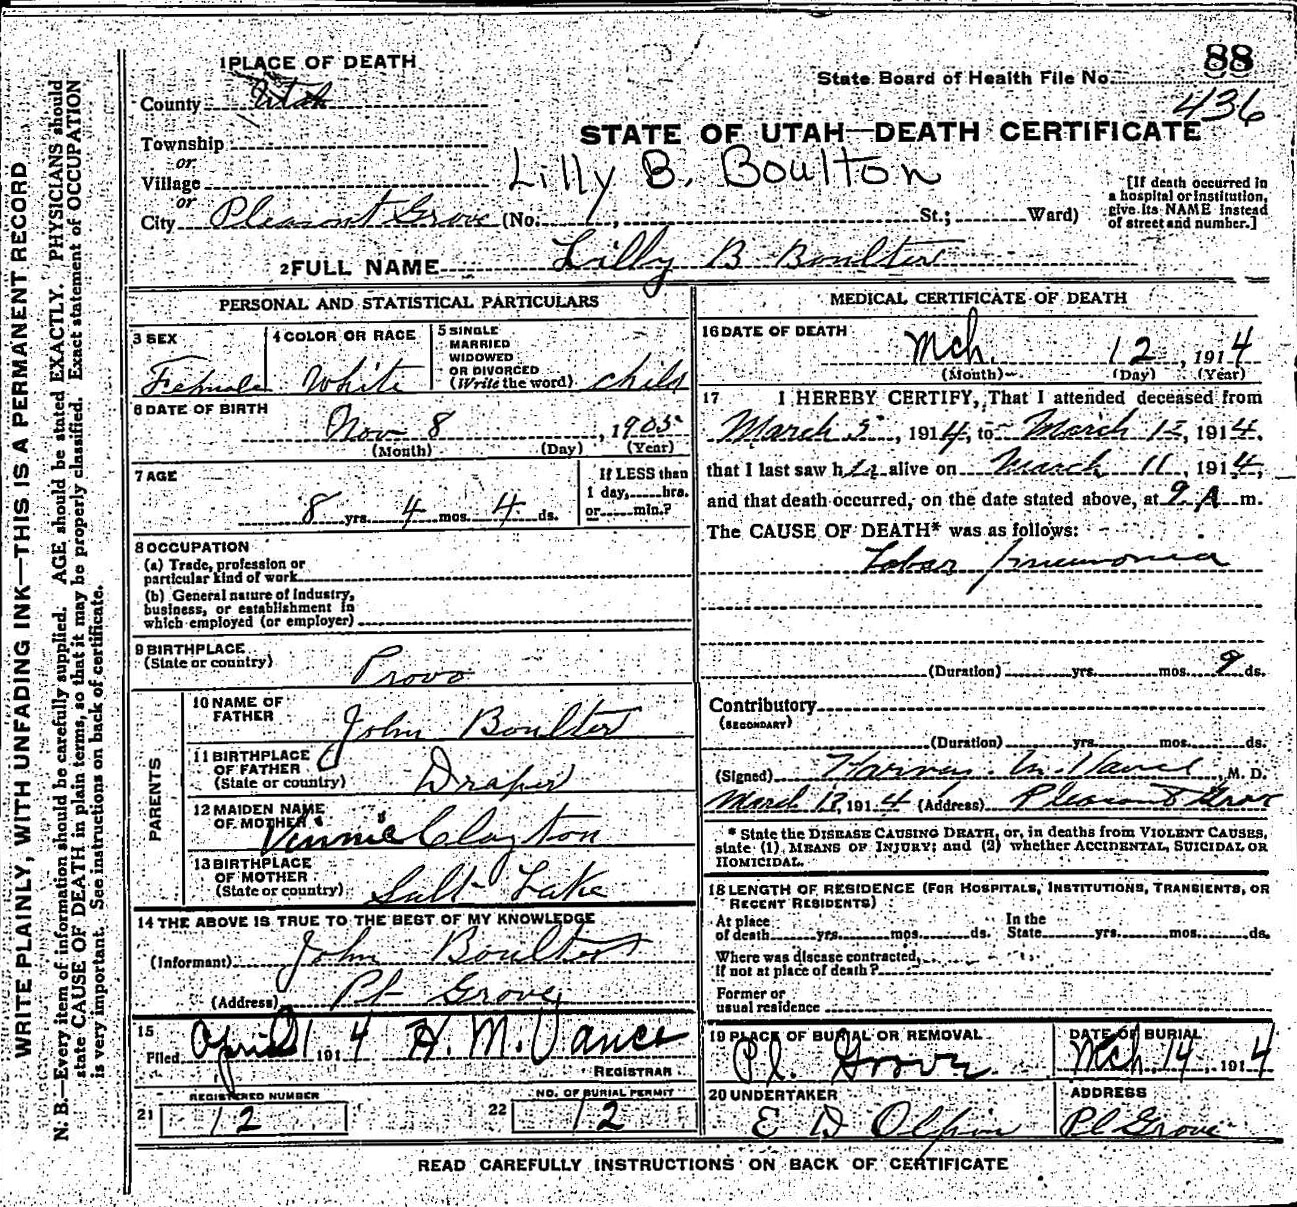 88
1 PLACE OF DEATH
State Board of Health File No.
County Utah
436
STATE OF UTAH—DEATH CERTIFICATE
Township
or
Village
Lilly B. Boulton
or
City Pleasant Grove (No. , St.; Ward)
[If death occurred in a hospital or institution, give its NAME instead of street and number.]
2 FULL NAME Lilly B Boulter
WRITE PLAINLY, WITH UNFADING INK—THIS IS A PERMANENT RECORD
N. B.—Every item of information should be carefully supplied. AGE should be stated EXACTLY. PHYSICIANS should
state CAUSE OF DEATH in plain terms, so that it may be properly classified. Exact statement of OCCUPATION
is very important. See instructions on back of certificate.
PERSONAL AND STATISTICAL PARTICULARS
3 SEX
Female
4 COLOR OR RACE
White
5 SINGLE
MARRIED
WIDOWED
OR DIVORCED
(Write the word) child
6 DATE OF BIRTH
Nov 8, 1905
(Month) (Day) (Year)
7 AGE
8 yrs. 4 mos. 4 ds.
If LESS than
1 day, hrs.
or min.?
8 OCCUPATION
(a) Trade, profession or
particular kind of work
(b) General nature of industry,
business, or establishment in
which employed (or employer)
9 BIRTHPLACE
(State or country)
Provo
PARENTS
10 NAME OF
FATHER
John Boulter
11 BIRTHPLACE
OF FATHER
(State or country)
Draper
12 MAIDEN NAME
OF MOTHER
Vinnie Clayton
13 BIRTHPLACE
OF MOTHER
(State or country)
Salt Lake
14 THE ABOVE IS TRUE TO THE BEST OF MY KNOWLEDGE
(Informant) John Boulter
(Address) Pl Grove
15
Filed April 1 1914 H. M. Vance
REGISTRAR
REGISTERED NUMBER
21 12
NO. OF BURIAL PERMIT
22 12
MEDICAL CERTIFICATE OF DEATH
16 DATE OF DEATH
Mch 12, 1914
(Month) (Day) (Year)
17 I HEREBY CERTIFY, That I attended deceased from
March 5, 1914, to March 12, 1914,
that I last saw her alive on March 11, 1914,
and that death occurred, on the date stated above, at 9 A m.
The CAUSE OF DEATH* was as follows:
Lobar pneumonia
(Duration) yrs. mos. 9 ds.
Contributory
(SECONDARY)
(Duration) yrs. mos. ds.
(Signed) , M. D.
March 12 1914 (Address) Pleasant Grove
* State the DISEASE CAUSING DEATH, or, in deaths from VIOLENT CAUSES,
state (1) MEANS OF INJURY; and (2) whether ACCIDENTAL, SUICIDAL OR
HOMICIDAL.
18 LENGTH OF RESIDENCE (FOR HOSPITALS, INSTITUTIONS, TRANSIENTS, OR
RECENT RESIDENTS)
At place
of death yrs. mos. ds.
In the
State yrs. mos. ds.
Where was disease contracted,
if not at place of death?
Former or
usual residence
19 PLACE OF BURIAL OR REMOVAL
Pl. Grove
DATE OF BURIAL
Mch. 14, 1914
20 UNDERTAKER
E D Olpin
ADDRESS
Pl Grove
READ CAREFULLY INSTRUCTIONS ON BACK OF CERTIFICATE